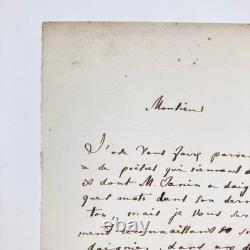 Monsieur
J'ose vous faire parve
n de poésies qui viennent d
is dont M. Janin a daig
quel mots dans son dern
ton, mais je vous ser
ment reconnaissant
daignier, dans un